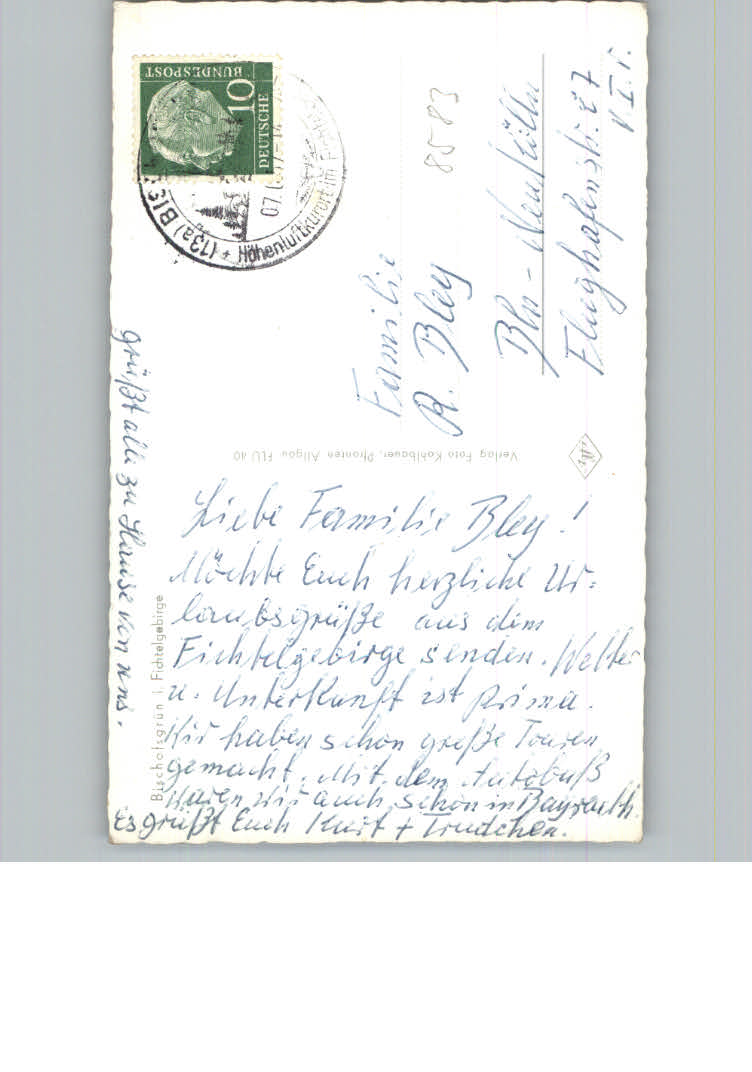 DEUTSCHE
BUNDESPOST
10
(13a) Bisch
Höhenluftkurort im Fichtel
07.
8583
Familie
R. Bley
Bln - Neukölln
Flughafenstr. 27
v. I. r.
Verlag Foto Kohlbauer, Pfronten Allgäu FLU 40
Bischofsgrün i. Fichtelgebirge
Liebe Familie Bley!
Möchte Euch herzliche Ur=
laubsgrüße aus dem
Fichtelgebirge senden. Wetter
u. Unterkunft ist prima.
Wir haben schon große Touren
gemacht. Mit dem Autobuß
waren wir auch schon in Bayreuth.
Es grüßt Euch Kurt + Trudchen.
grüßt alle zu Hause von uns.